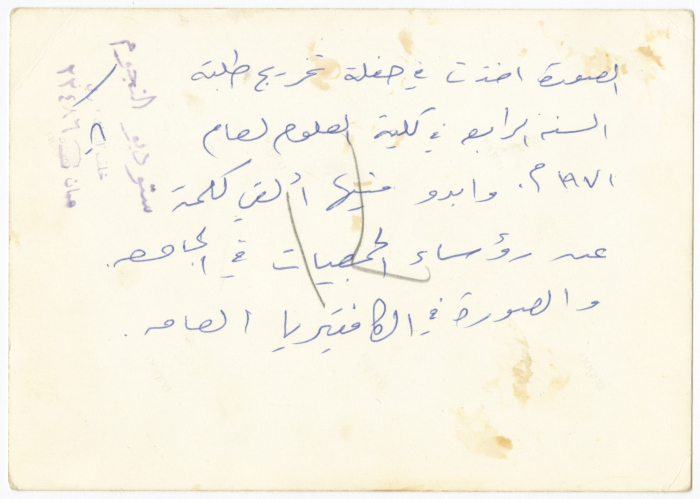 الصورة اخذت في حفلة تخريج طلبة
السنه الرابعه في كلية العلوم لعام
١٩٧١م. وابدو فيها ألقي كلمة
عن رؤساء الجمعيات في الجامعه.
والصورة في الكافتيريا العامه.
ستوديو النجوم